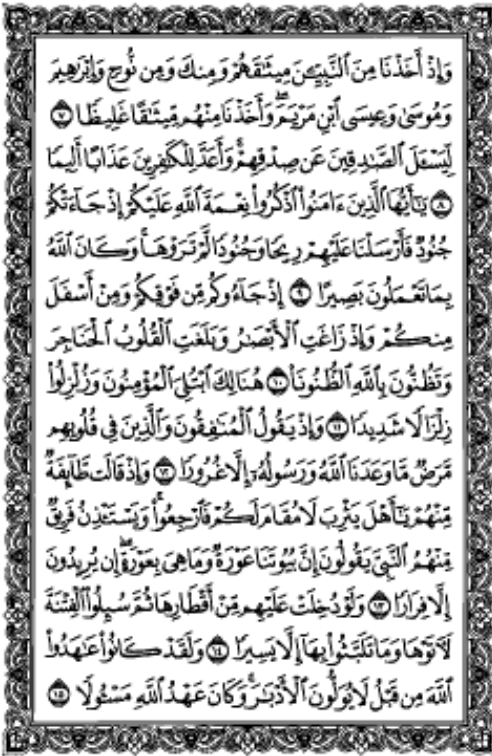 وَإِذْ أَخَذْنَا مِنَ ٱلنَّبِيِّـۧنَ مِيثَـٰقَهُمْ وَمِنكَ وَمِن نُّوحٍ وَإِبْرَٰهِيمَ
وَمُوسَىٰ وَعِيسَى ٱبْنِ مَرْيَمَ ۖ وَأَخَذْنَا مِنْهُم مِّيثَـٰقًا غَلِيظًا ٧
لِّيَسْـَٔلَ ٱلصَّـٰدِقِينَ عَن صِدْقِهِمْ ۚ وَأَعَدَّ لِلْكَـٰفِرِينَ عَذَابًا أَلِيمًا
٨ يَـٰٓأَيُّهَا ٱلَّذِينَ ءَامَنُوا۟ ٱذْكُرُوا۟ نِعْمَةَ ٱللَّهِ عَلَيْكُمْ إِذْ جَآءَتْكُمْ
جُنُودٌ فَأَرْسَلْنَا عَلَيْهِمْ رِيحًا وَجُنُودًا لَّمْ تَرَوْهَا ۚ وَكَانَ ٱللَّهُ
بِمَا تَعْمَلُونَ بَصِيرًا ٩ إِذْ جَآءُوكُم مِّن فَوْقِكُمْ وَمِنْ أَسْفَلَ
مِنكُمْ وَإِذْ زَاغَتِ ٱلْأَبْصَـٰرُ وَبَلَغَتِ ٱلْقُلُوبُ ٱلْحَنَاجِرَ
وَتَظُنُّونَ بِٱللَّهِ ٱلظُّنُونَا۠ ١٠ هُنَالِكَ ٱبْتُلِىَ ٱلْمُؤْمِنُونَ وَزُلْزِلُوا۟
زِلْزَالًا شَدِيدًا ١١ وَإِذْ يَقُولُ ٱلْمُنَـٰفِقُونَ وَٱلَّذِينَ فِى قُلُوبِهِم
مَّرَضٌ مَّا وَعَدَنَا ٱللَّهُ وَرَسُولُهُۥٓ إِلَّا غُرُورًا ١٢ وَإِذْ قَالَت طَّآئِفَةٌ
مِّنْهُمْ يَـٰٓأَهْلَ يَثْرِبَ لَا مُقَامَ لَكُمْ فَٱرْجِعُوا۟ ۚ وَيَسْتَـْٔذِنُ فَرِيقٌ
مِّنْهُمُ ٱلنَّبِىَّ يَقُولُونَ إِنَّ بُيُوتَنَا عَوْرَةٌ وَمَا هِىَ بِعَوْرَةٍ ۖ إِن يُرِيدُونَ
إِلَّا فِرَارًا ١٣ وَلَوْ دُخِلَتْ عَلَيْهِم مِّنْ أَقْطَارِهَا ثُمَّ سُئِلُوا۟ ٱلْفِتْنَةَ
لَـَٔاتَوْهَا وَمَا تَلَبَّثُوا۟ بِهَآ إِلَّا يَسِيرًا ١٤ وَلَقَدْ كَانُوا۟ عَـٰهَدُوا۟
ٱللَّهَ مِن قَبْلُ لَا يُوَلُّونَ ٱلْأَدْبَـٰرَ ۚ وَكَانَ عَهْدُ ٱللَّهِ مَسْـُٔولًا ١٥